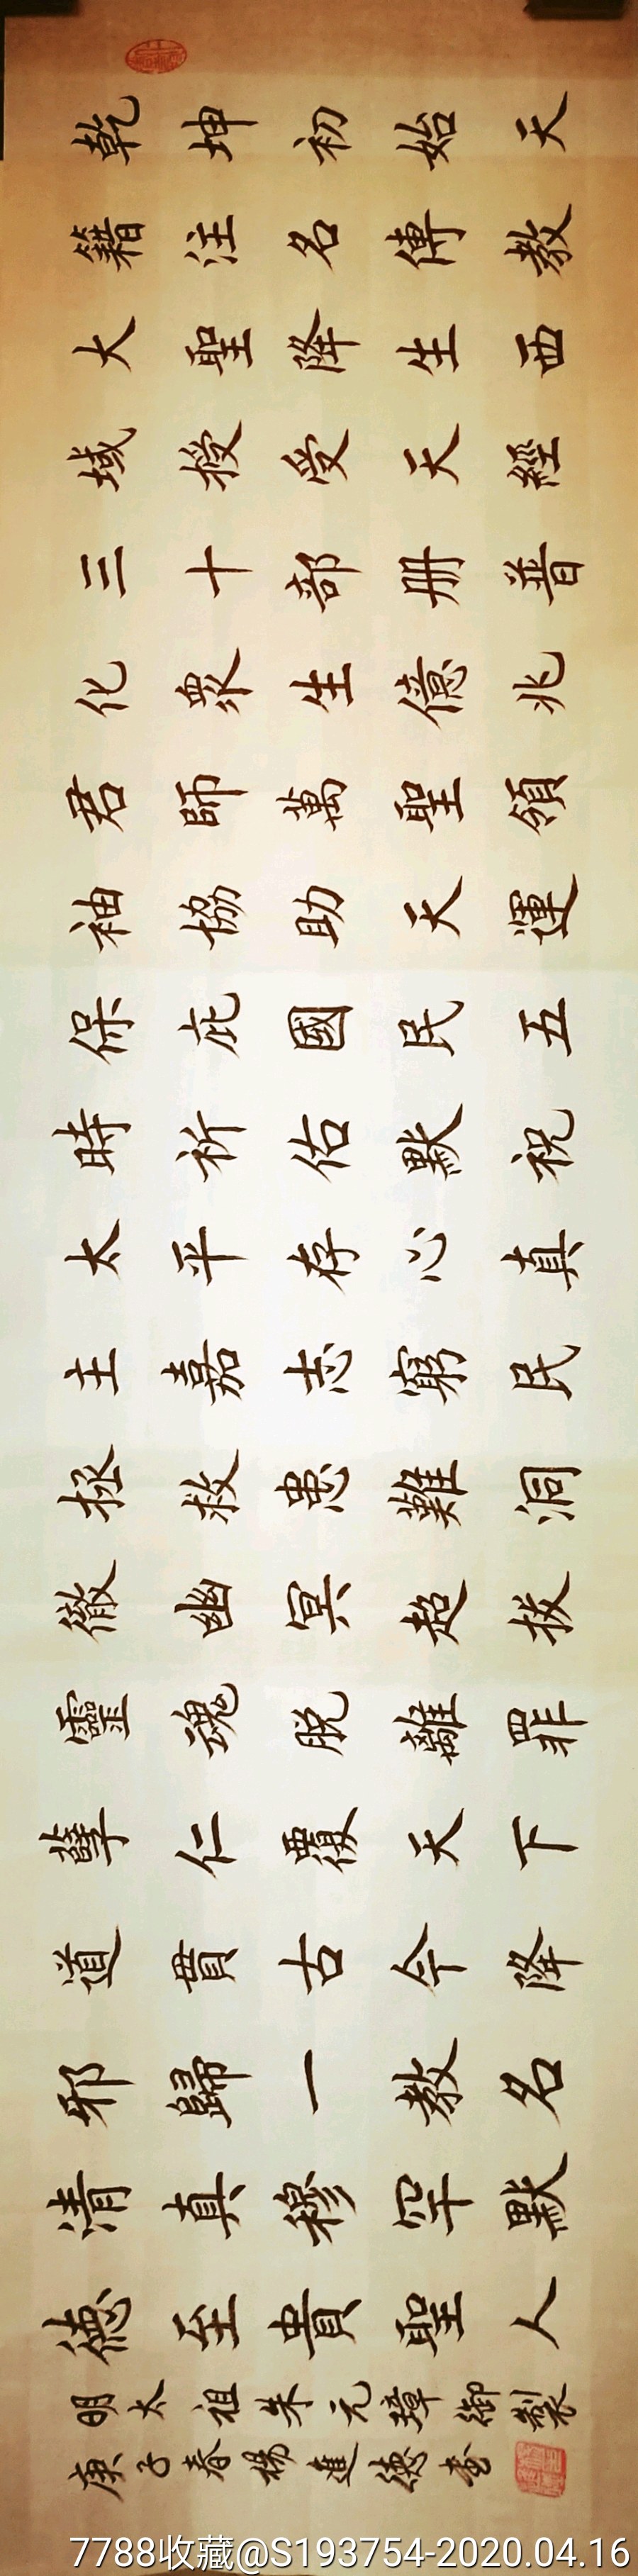 乾坤初始天
籍注名傳教
大聖降生西
域授受天經
三十部册普
化衆生億兆
君師萬聖領
袖協助天運
保庇國民五
時祈佑默祝
太平存心真
主嘉志窮民
拯救患難洞
徹幽冥超拔
靈魂脱離罪
孽仁覆天下
道貫古今降
邪歸一教名
清真穆罕默
德至貴聖人
明太祖朱元璋御製
庚子春楊進德書
7788收藏@S193754-2020.04.16